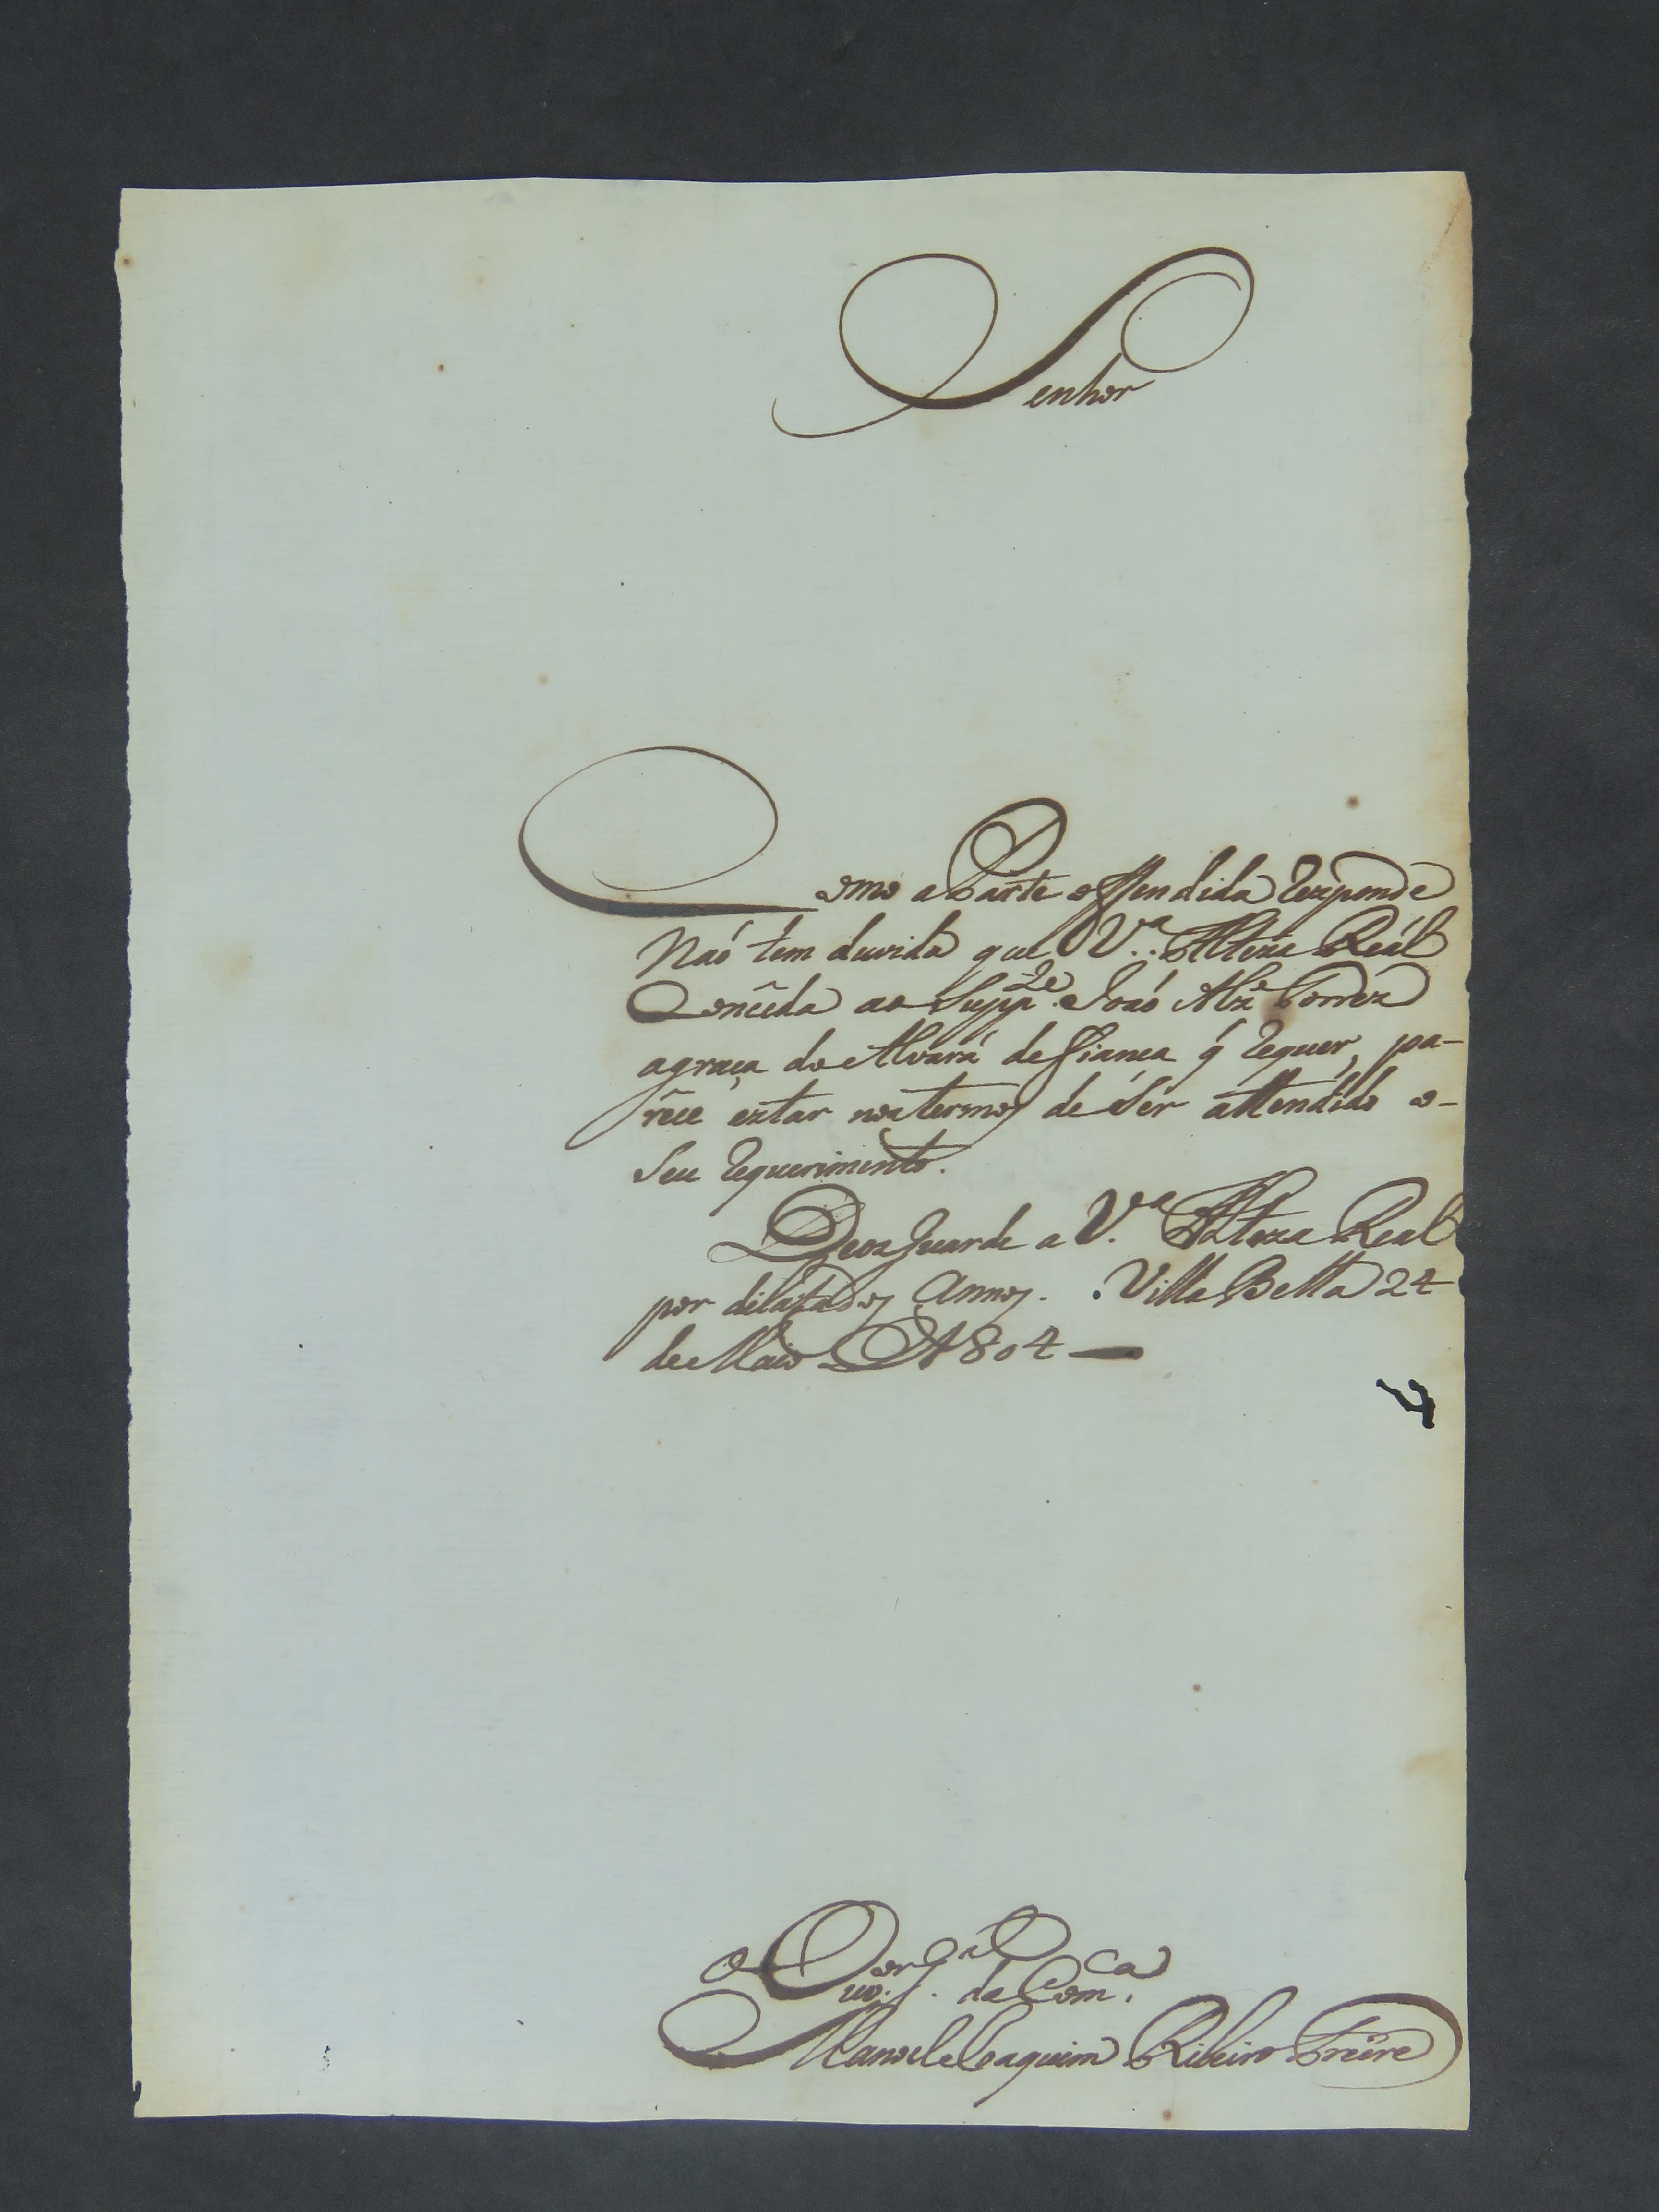 Senhor
Como a Parte offendida responde
Naó tem duvida que V.ª Alteza Reál
Conceda ao Supp.te Joaó Alz̃ Correa
agraça do Alvará de fiança q́ requer, pa-
rece estar nos termos de Ser attendido o-
Seu requerimento.
Deos guarde a V.ª Alteza Real
por dilatados Annos. Villa Bella 24
de Maio de 1804 —
O Ouv.or g.al da Com.ca
Manoel Joaquim Ribeiro Freire